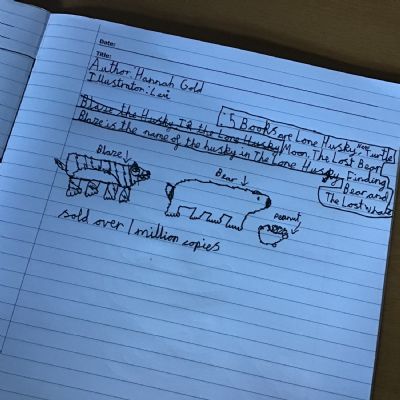 Date:
Title:
Author: Hannah Gold
Illustrator: Levi
Blaze the Husky I R the Lone Husky
Blaze is the name of the husky in The Lone Husky
:5 Books are Lone Husky, Turtle
Moon, The Lost Bear,
Finding
Bear and
The Lost whale
Blaze
Bear
Peanut
sold over 1 million copies